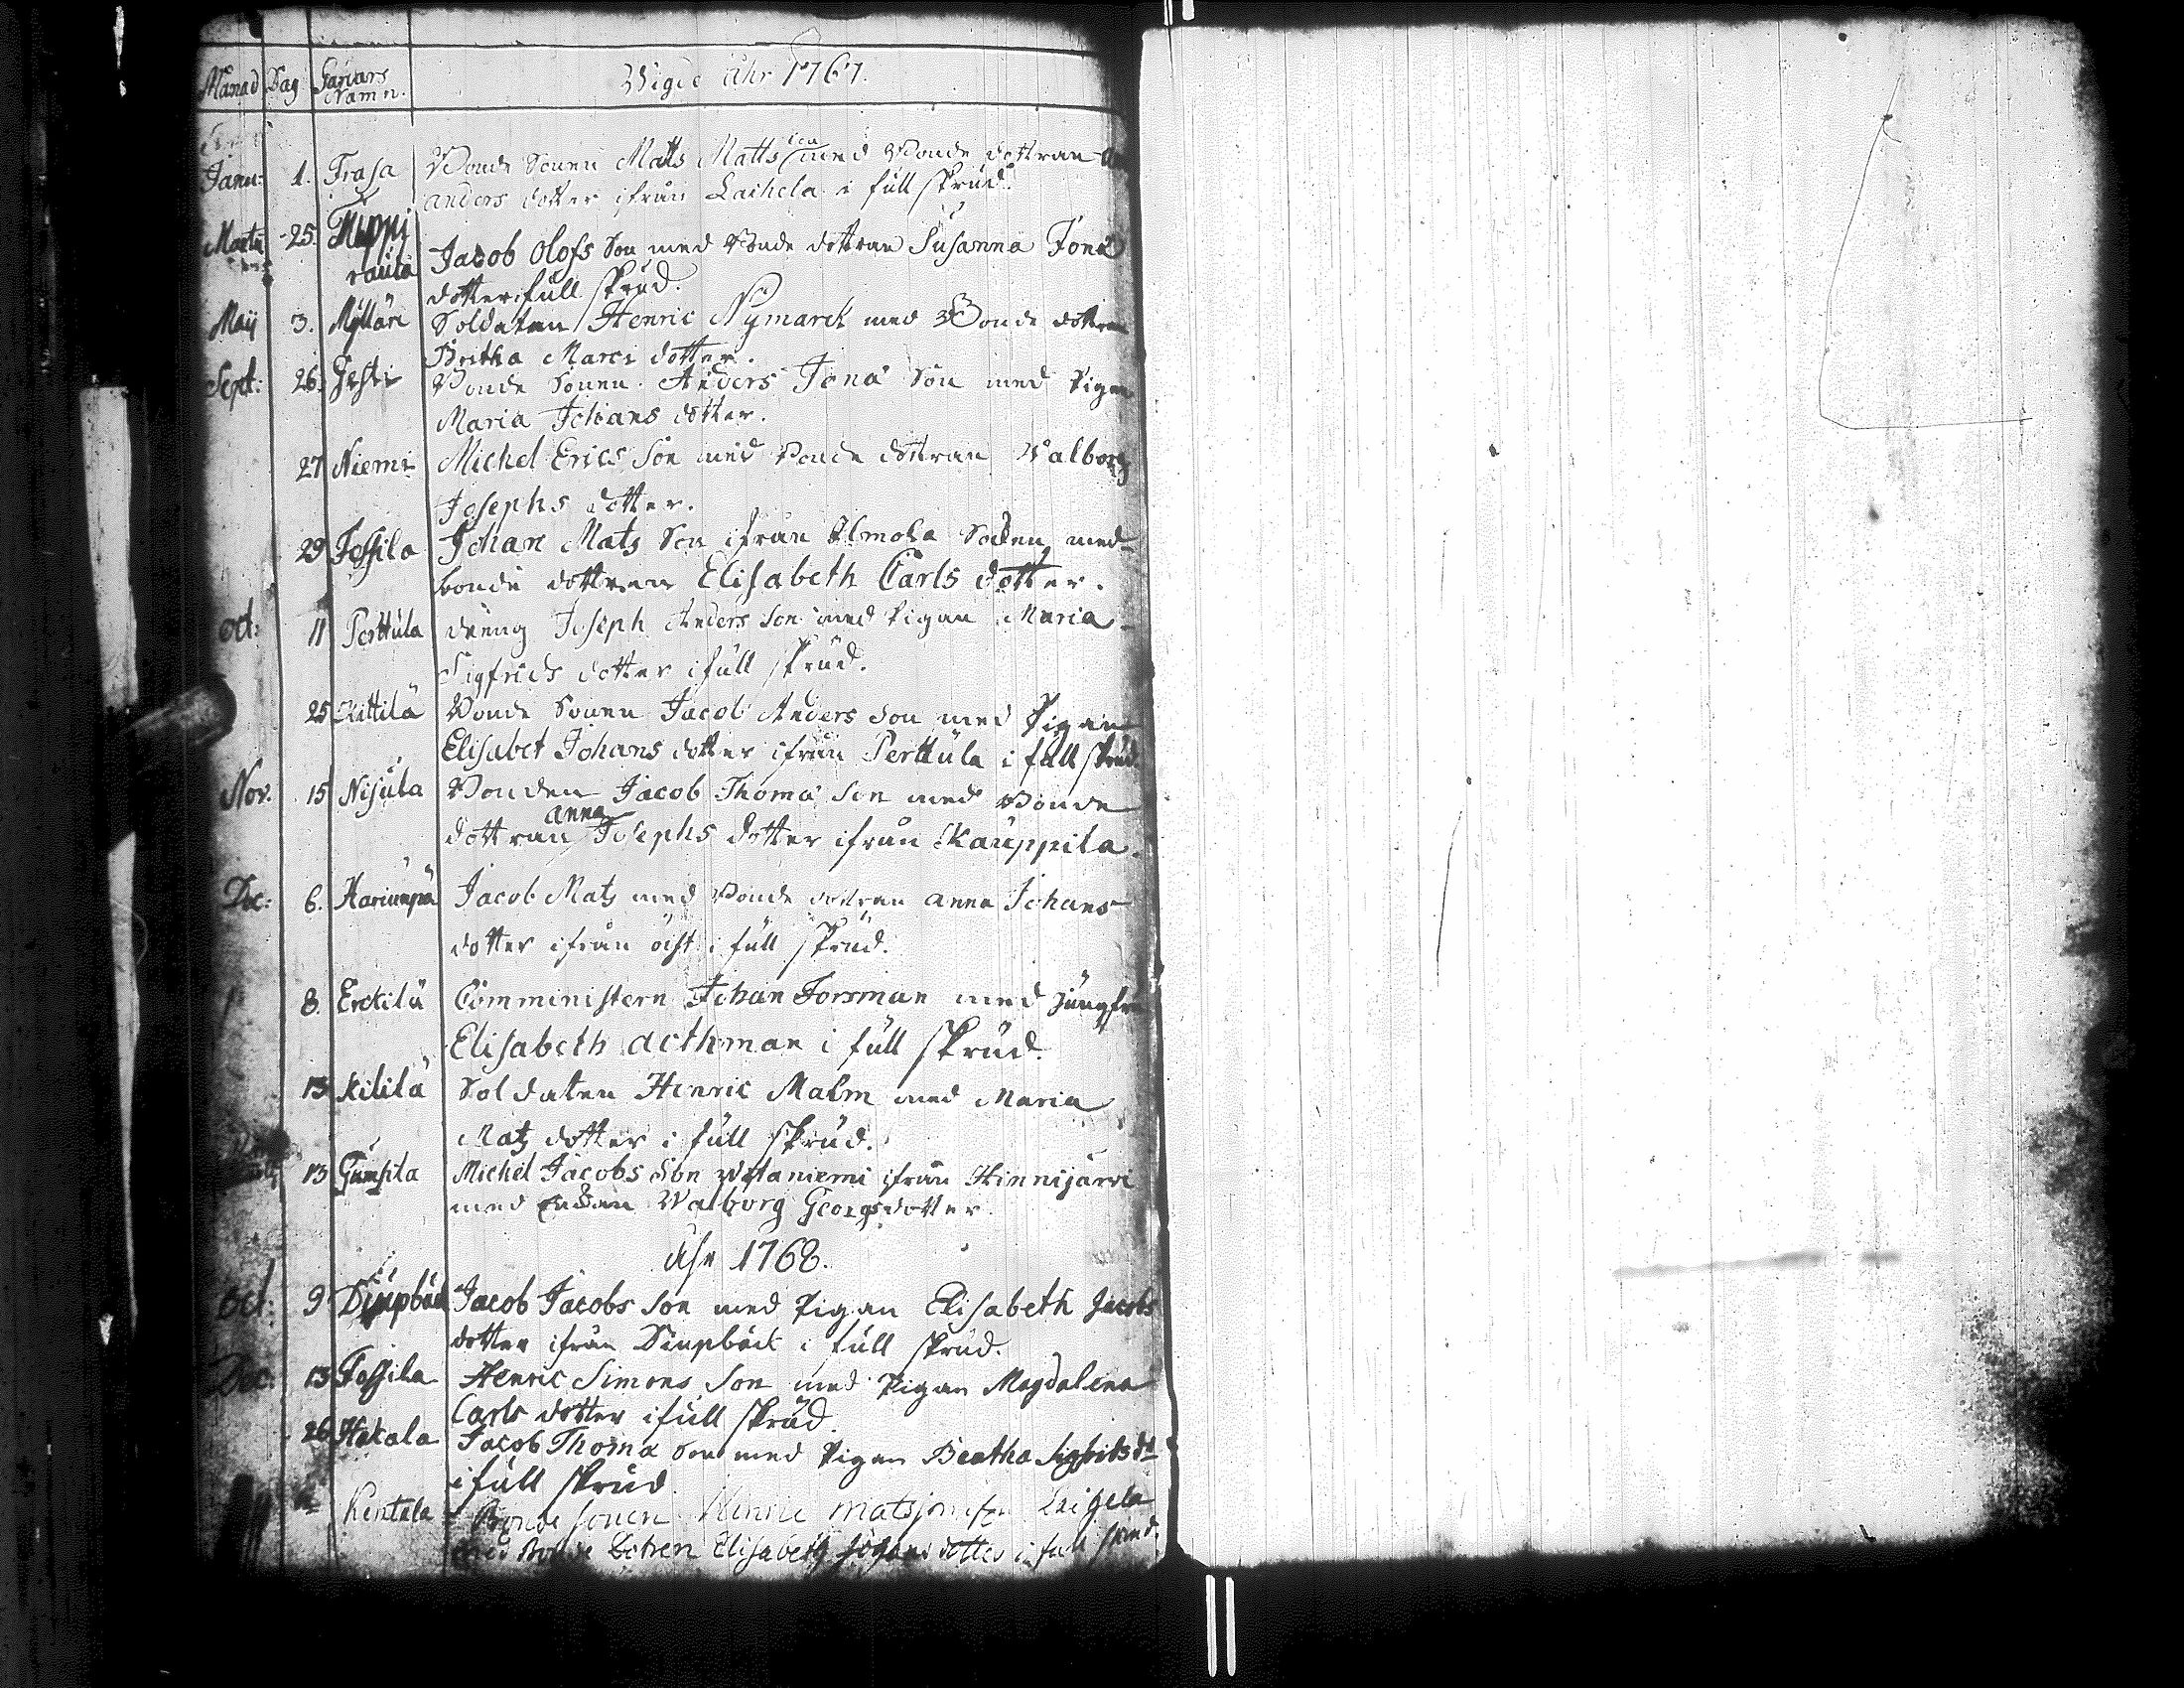 Månad Dag Gårdars Namn. Wigde Åhr 1767.
Janu: 1. Frasa Bonde Sonen Matts Matts son med Bonde dottran
anders dotter ifrån Laihela i full skrud.
Martii 25. Jacob Olofs Son med Bonde dottran Susanna Jona
rauta dotter i full skrud.
Maij 3. Mÿllari Soldaten Henric Nymarck med Bonde dottran
Britha Marci dotter.
Sept: 26. Bonde Sonen Anders Jona Son med Pigan
Maria Johans dotter.
27 Niemi Michel Erics Son med Bonde dottran Walborg
Josephs dotter.
29 Fossila Johan Mats Son ifrån Ilmola Socken med
bonde dottren Elisabeth Carls dotter.
Oct: 11 Perttula dreng Joseph Anders Son med Pigan Maria
Sigfrids dotter i full skrud.
25 Kittilä Bonde Sonen Jacob Anders Son med Pigan
Elisabet Johans dotter ifrån Perttula i full skrud.
Nov. 15 Nisula Bonden Jacob Thoma Son med Bonde
dottran anna Josephs dotter ifrån Kauppila.
Dec: 6. Hariunpä Jacob Mats med Bonde dottran anna Johans
dotter ifrån i full skrud.
8. Erckilä Comministern Johan Forsman med Jungfru
Elisabeth Aethman i full skrud.
13 Kililä Soldaten Henric Malm med Maria
Matz dotter i full skrud.
13 Gumsila Michel Jacobs Son ifrån Hinnijärvi
med Walborg Georgs dotter.
Åhr 1768.
Oct: 9 Diupbäck Jacob Jacobs Son med Pigan Elisabeth Jacobs
dotter ifrån Diupbäck i full skrud.
Dec: 13 Fossila Henric Simons Son med Pigan Magdalena
Carls dotter i full skrud.
26 Hakala Jacob Thoma Son med Pigan Beatha Sigfrids dr
i full skrud
Rentala Bonde sonen Henric Matsson Laihela
med Bonde Dotren Elisabeth Johans dotter i full skrud.